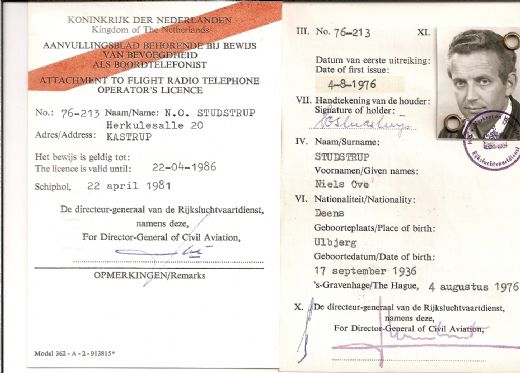 KONINKRIJK DER NEDERLANDEN
Kingdom of The Netherlands
AANVULLINGSBLAD BEHORENDE BIJ BEWIJS
VAN BEVOEGDHEID
ALS BOORDTELEFONIST
ATTACHMENT TO FLIGHT RADIO TELEPHONE
OPERATOR'S LICENCE
No.: 76-213 Naam/Name: N.O. STUDSTRUP
Herkulesalle 20
Adres/Address: KASTRUP
Het bewijs is geldig tot:
The licence is valid until: 22-04-1986
Schiphol, 22 april 1981
De directeur-generaal van de Rijksluchtvaartdienst,
namens deze,
For Director-General of Civil Aviation,
OPMERKINGEN/Remarks
Model 362 - A - 2 - 913815*
III. No. 76-213 XI.
Datum van eerste uitreiking:
Date of first issue:
4-8-1976
VII. Handtekening van de houder:
Signature of holder:
IV. Naam/Surname:
STUDSTRUP
Voornamen/Given names:
Niels Ove
VI. Nationaliteit/Nationality:
Deens
Geboorteplaats/Place of birth:
Ulbjerg
Geboortedatum/Date of birth:
17 september 1936
's-Gravenhage/The Hague, 4 augustus 1976
X. De directeur-generaal van de Rijksluchtvaartdienst,
namens deze,
For Director-General of Civil Aviation,
Rijksluchtvaartdienst